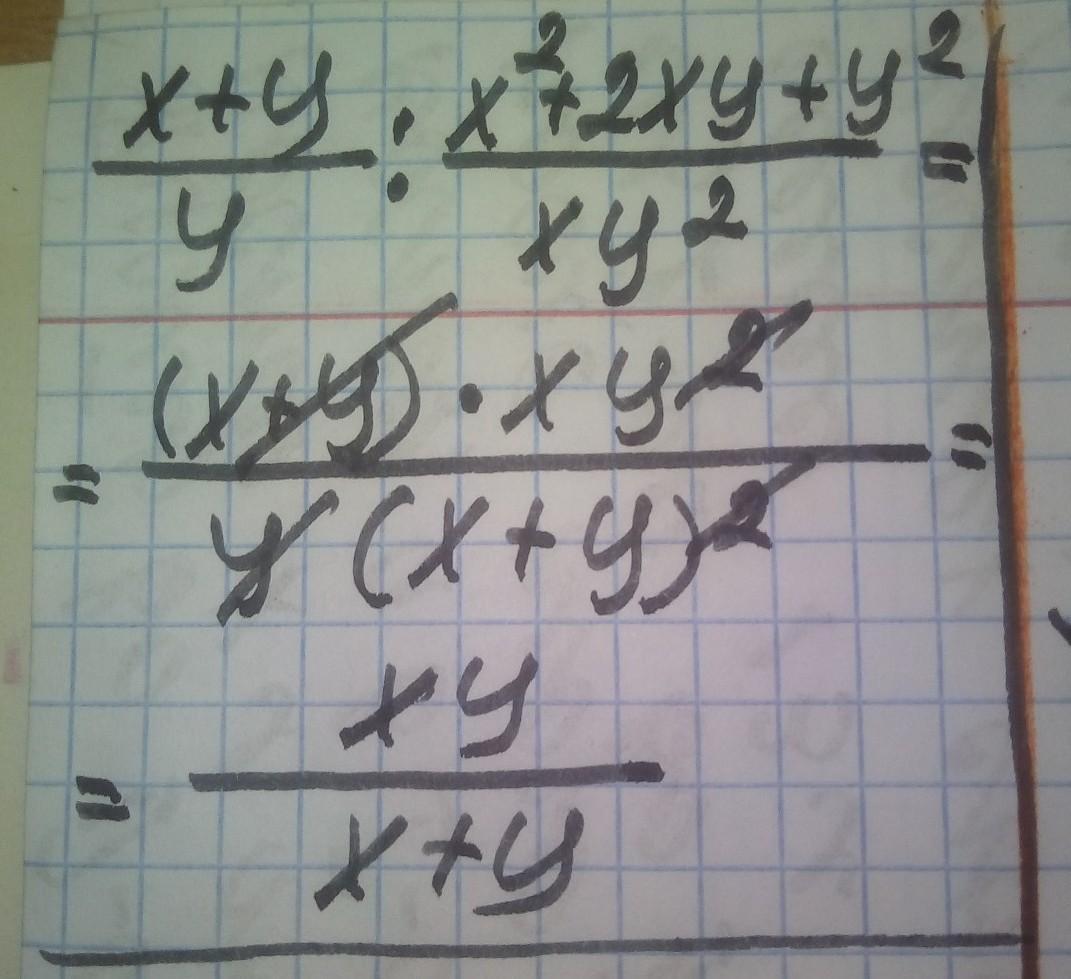 x+y / y : x²+2xy+y² / xy² =
= (x+y) · xy² / y (x+y)² =
= xy / x+y